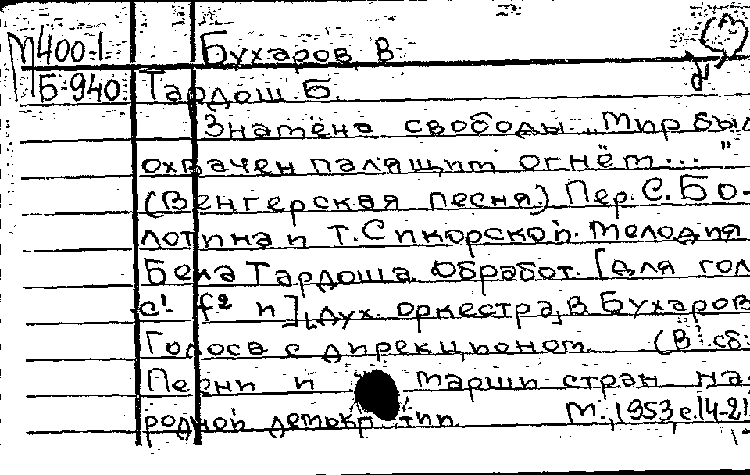 М400-1 Бухаров, В.
Б-940 Тардош Б.
Знамёна свободы. „Мир был
охвачен палящим огнём..."
(Венгерская песня). Пер. С. Бо-
лотина и Т. Сикорской. Мелодия
Бела Тардоша. Обработ. [для гол
c¹ f² и] дух. оркестра, В. Бухаров
Голоса с дирекционом. (В сб:
Песни и марши стран на-
родной демократии. М., 1953, с. 14-21